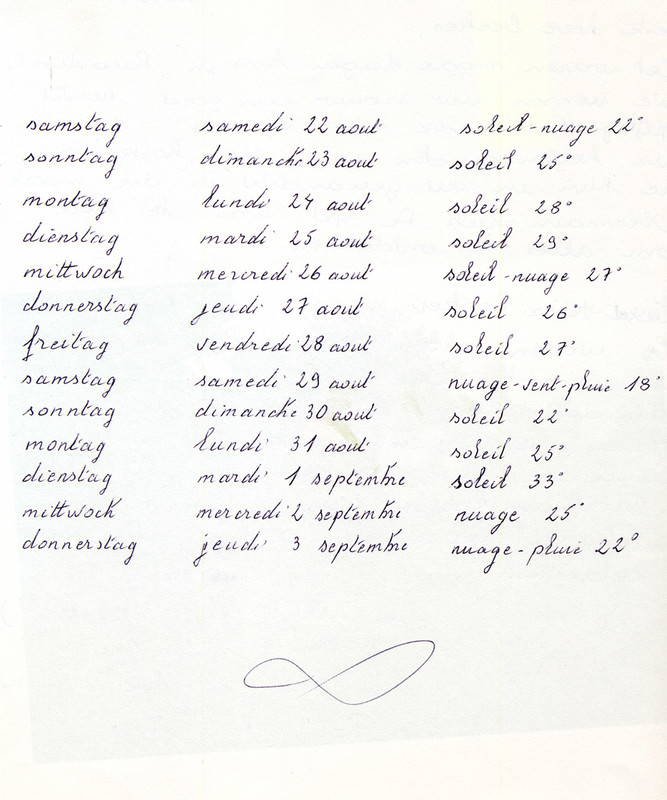 samstag samedi 22 aout soleil-nuage 22°
sonntag dimanche 23 aout soleil 25°
montag lundi 24 aout soleil 28°
dienstag mardi 25 aout soleil 29°
mittwoch mercredi 26 aout soleil-nuage 27°
donnerstag jeudi 27 aout soleil 26°
freitag vendredi 28 aout soleil 27°
samstag samedi 29 aout nuage-vent-pluie 18°
sonntag dimanche 30 aout soleil 22°
montag lundi 31 aout soleil 25°
dienstag mardi 1 septembre soleil 33°
mittwoch mercredi 2 septembre nuage 25°
donnerstag jeudi 3 septembre nuage-pluie 22°